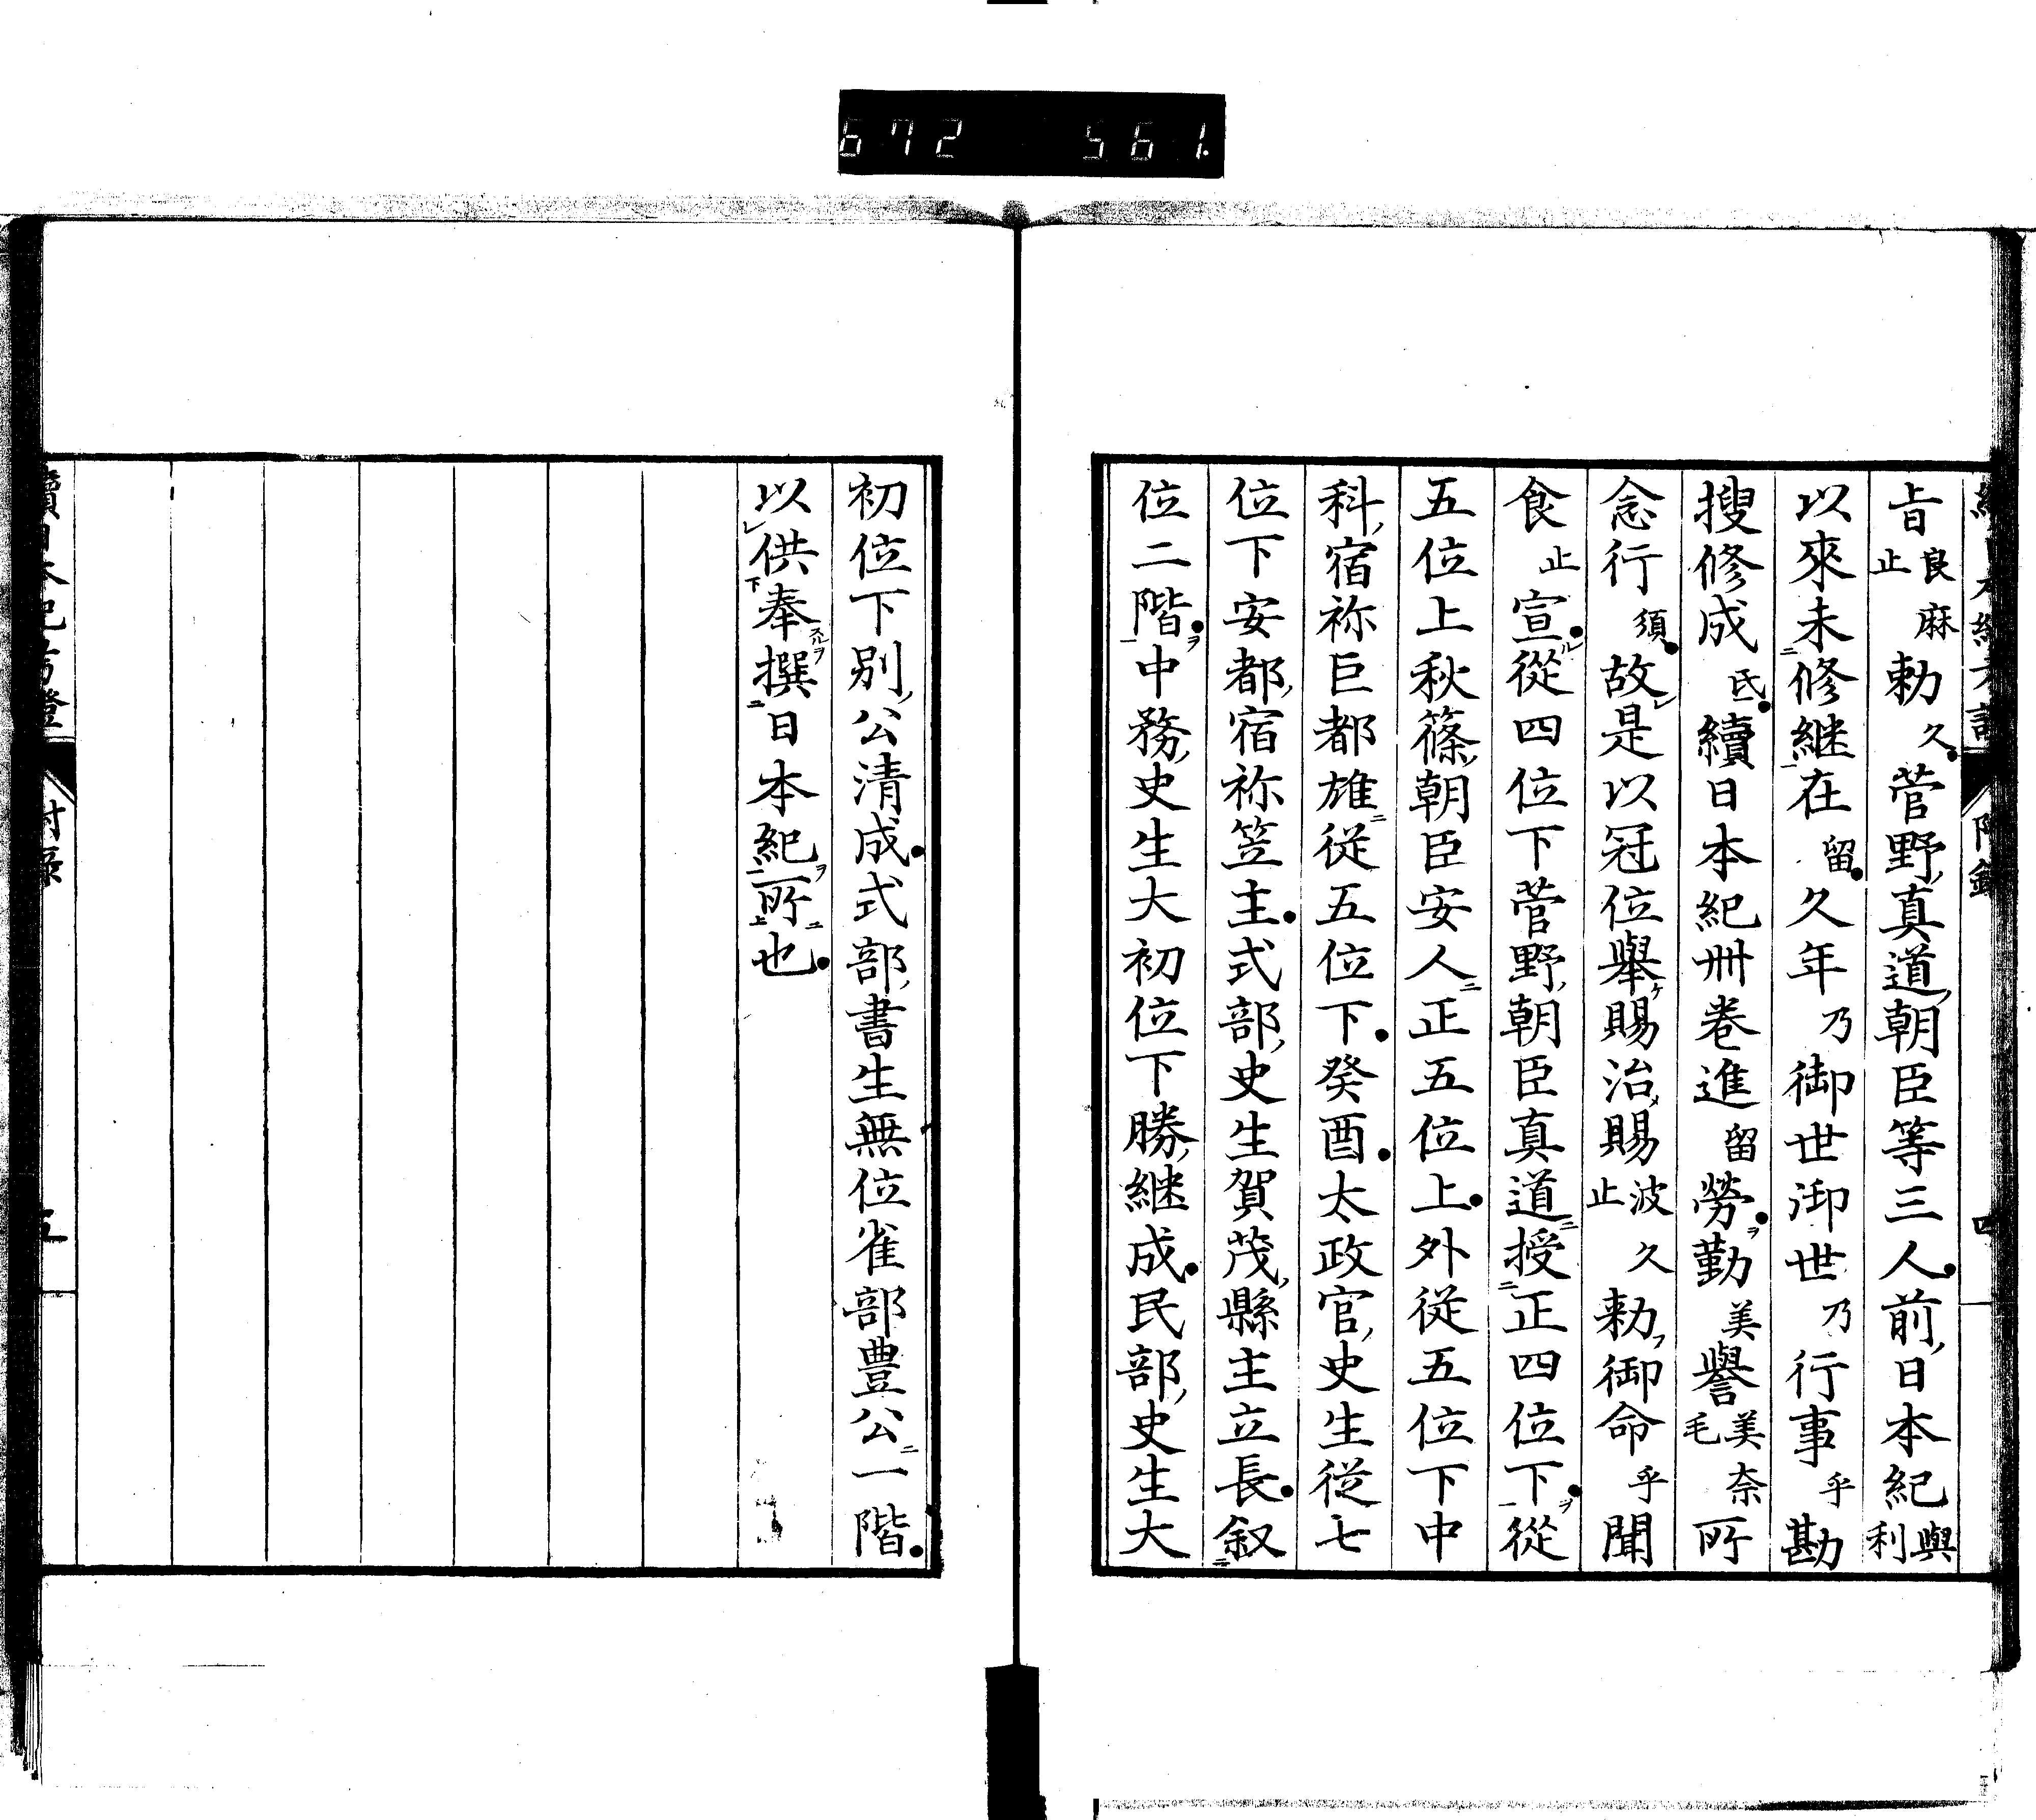 672 561.
旨良止麻勅久菅野真道朝臣等三人前日本紀與利
以來未修継在留久年乃御世御世乃行事乎勘
搜修成氐續日本紀卌巻進留勞勤美譽美奈毛所
念行須故是以冠位舉賜治賜波止久勅御命乎聞
食止宣從四位下菅野朝臣真道授正四位下從
五位上秋篠朝臣安人正五位上外従五位下中
科宿祢巨都雄従五位下癸酉太政官史生従七
位下安都宿祢笠主式部史生賀茂縣主立長叙
位二階中務史生大初位下勝継成民部史生大
初位下別公清成式部書生無位雀部豊公一階
以供奉撰日本紀所也
續日本紀考證 附録 五